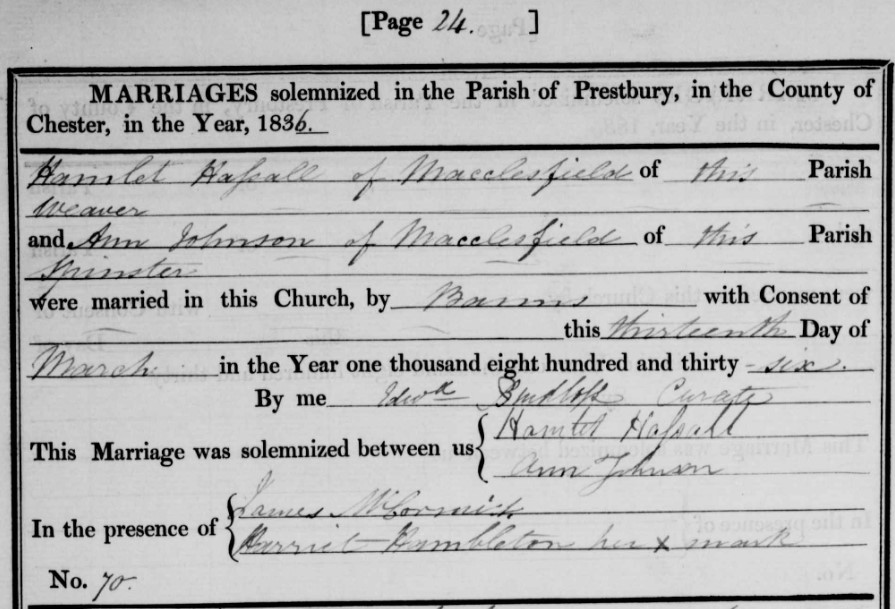 [Page 24. ]
MARRIAGES solemnized in the Parish of Prestbury, in the County of
Chester, in the Year, 1836.
Hamlet Haſsall of Macclesfield of this Parish
Weaver
and Ann Johnson of Macclesfield of this Parish
Spinster
were married in this Church, by Banns with Consent of
this thirteenth Day of
March in the Year one thousand eight hundred and thirty-six.
By me Edwd Curate
This Marriage was solemnized between us { Hamlet Haſsall
Ann Johnson
In the presence of { James McCormick
Harriet Hambleton her x mark
No. 70.